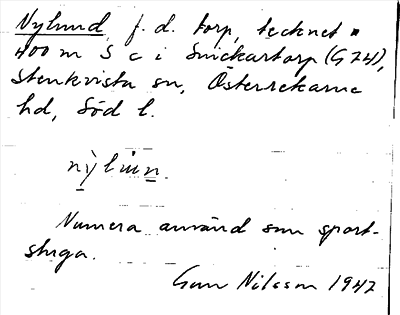 Nylund, f. d. torp, tecknet ▪
400 m S c i Snickartorp (G 24),
Stenkvista sn, Österrekarne
hd, Söd l.
nỳlun.
Numera använd som sport-
stuga.
Gun Nilsson 1942